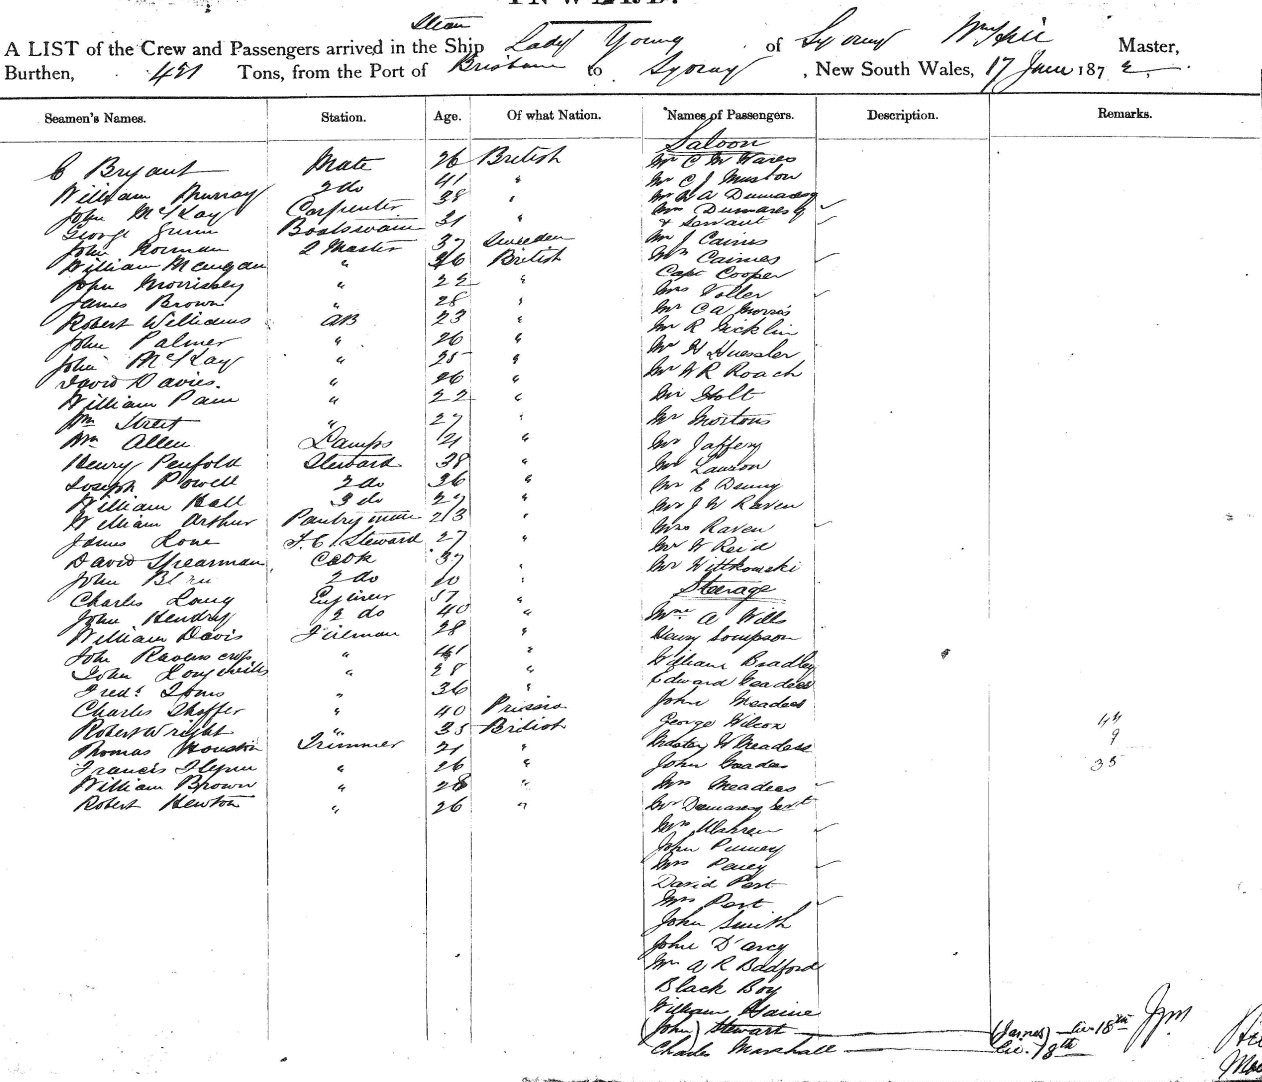 INWARD.
A LIST of the Crew and Passengers arrived in the Ship Steam Lady Young of Sydney Wm Hill Master,
Burthen, 421 Tons, from the Port of Brisbane to Sydney, New South Wales, 17 June 1872
Seamen's Names. Station. Age. Of what Nation. Names of Passengers. Description. Remarks.
Saloon
C Bryant Mate 26 British Mr C W
William Murray 2 do 41 " Mr C J Muston
John McKay Carpenter 38 " Mr Dumaresq
Mrs Dumaresq
George Boatswain 31 " & Servant
John Norman 2 Master 37 Sweden Mr J Caines
William " 26 British Mrs Caines
Capt Cooper
John Morrissey " 22 " Mrs Voller
James Brown " 28 " Mr C A Morris
Robert Williams AB 23 " Mr R Hicklin
John Palmer " 26 " Mr H Huessler
John McKay " 25 " Mr W R Roach
David Davies. " 26 "
William " 22 " Mr Holt
Wm Street " 27 " Mr Mortons
Wm Allen Lamps 21 " Mr Jaffery
Henry Penfold Steward 38 " Mr Lawson
Joseph Powell 2 do 36 " Mr E Denny
William Hall 3 do 27 " Mr J W Raven
William Arthur Pantryman 23 " Mrs Raven
James Rone F.C. Steward 27 " Mr W Reid
David Spearman Cook 37 " Mr Wittkowski
John 2 do "
Steerage
Charles Long Engineer 37 "
John Hendry 2 do 40 " A Wills
William Davis Fireman 28 " Henry Sompson
John Ravenscrop " 41 " William Bradley
John " 28 " Edward Meadees
Fredk " 36 " John Meadees
Charles Shaffer " 40 Prussia George Wilcox 44
Robert Wright " 35 British Master W Meadees 9
Thomas Houston Trimmer 21 " John 35
Francis Flynn " 26 " Mrs Meadees
William Brown " 28 " Mr Dumaresq Servt
Robert Newton " 26 " Mrs Warren
John
Mrs
David Pert
Mrs Pert
John Smith
John D'arcy
Mr A R Badford
Black Boy
William
(John) Stewart (James) Co. 18th
Charles Marshall Co. 18th